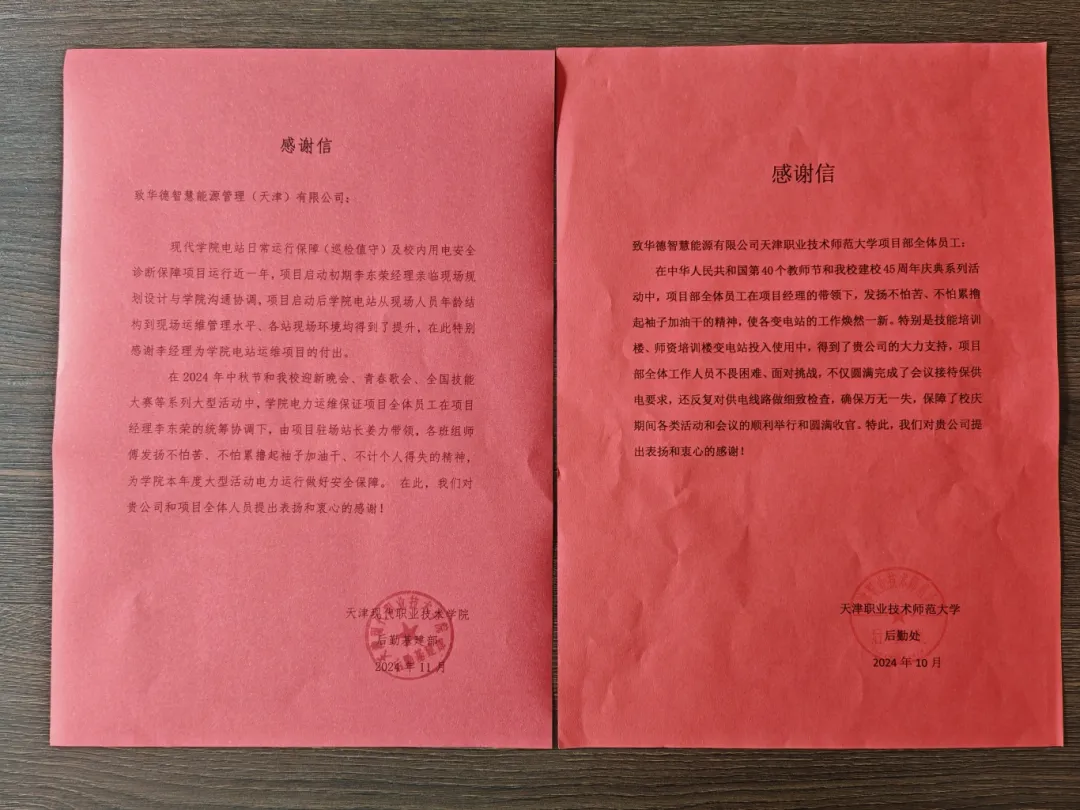 感谢信
致华德智慧能源管理（天津）有限公司：
现代学院电站日常运行保障（巡检值守）及校内用电安全
诊断保障项目运行近一年，项目启动初期李东荣经理亲临现场规
划设计与学院沟通协调，项目启动后学院电站从现场人员年龄结
构到现场运维管理水平、各站现场环境均得到了提升，在此特别
感谢李经理为学院电站运维项目的付出。
在 2024 年中秋节和我校迎新晚会、青春歌会、全国技能
大赛等系列大型活动中，学院电力运维保证项目全体员工在项目
经理李东荣的统筹协调下，由项目驻场站长姜力带领，各班组师
傅发扬不怕苦、不怕累撸起袖子加油干、不计个人得失的精神，
为学院本年度大型活动电力运行做好安全保障。 在此，我们对
贵公司和项目全体人员提出表扬和衷心的感谢！
天津现代职业技术学院
后勤基建部
2024 年 11 月
感谢信
致华德智慧能源有限公司天津职业技术师范大学项目部全体员工：
在中华人民共和国第 40 个教师节和我校建校 45 周年庆典系列活
动中，项目部全体员工在项目经理的带领下，发扬不怕苦、不怕累撸
起袖子加油干的精神，使各变电站的工作焕然一新。特别是技能培训
楼、师资培训楼变电站投入使用中，得到了贵公司的大力支持，项目
部全体工作人员不畏困难、面对挑战，不仅圆满完成了会议接待保供
电要求，还反复对供电线路做细致检查，确保万无一失，保障了校庆
期间各类活动和会议的顺利举行和圆满收官。特此，我们对贵公司提
出表扬和衷心的感谢！
天津职业技术师范大学
后勤处
2024 年 10 月